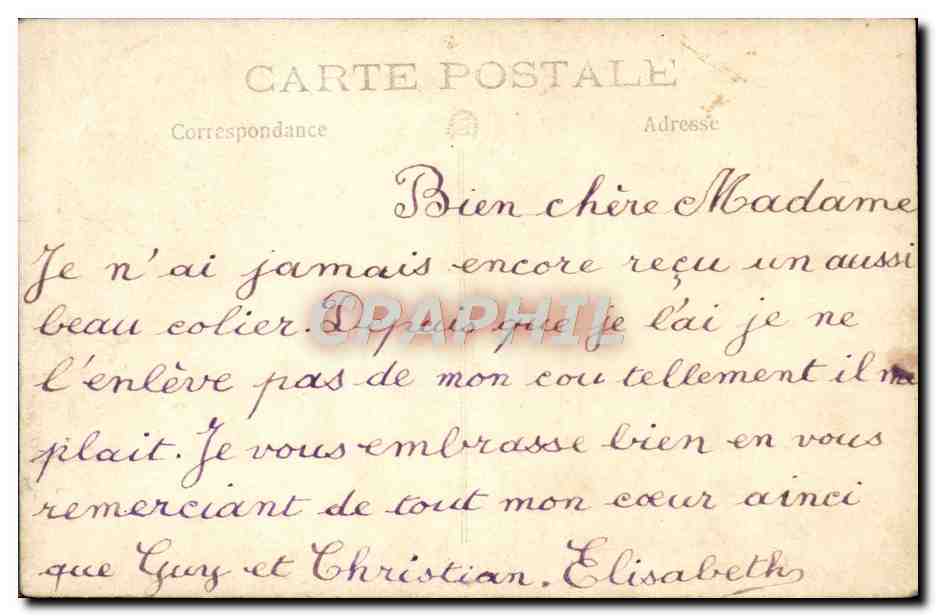 CARTE POSTALE
Correspondance
Adresse
Bien chère Madame
Je n'ai jamais encore reçu un aussi
beau colier. Depuis que je l'ai je ne
l'enlève pas de mon cou tellement il me
plait. Je vous embrasse bien en vous
remerciant de tout mon cœur ainci
que Guy et Christian. Elisabeth
CPAPHIL